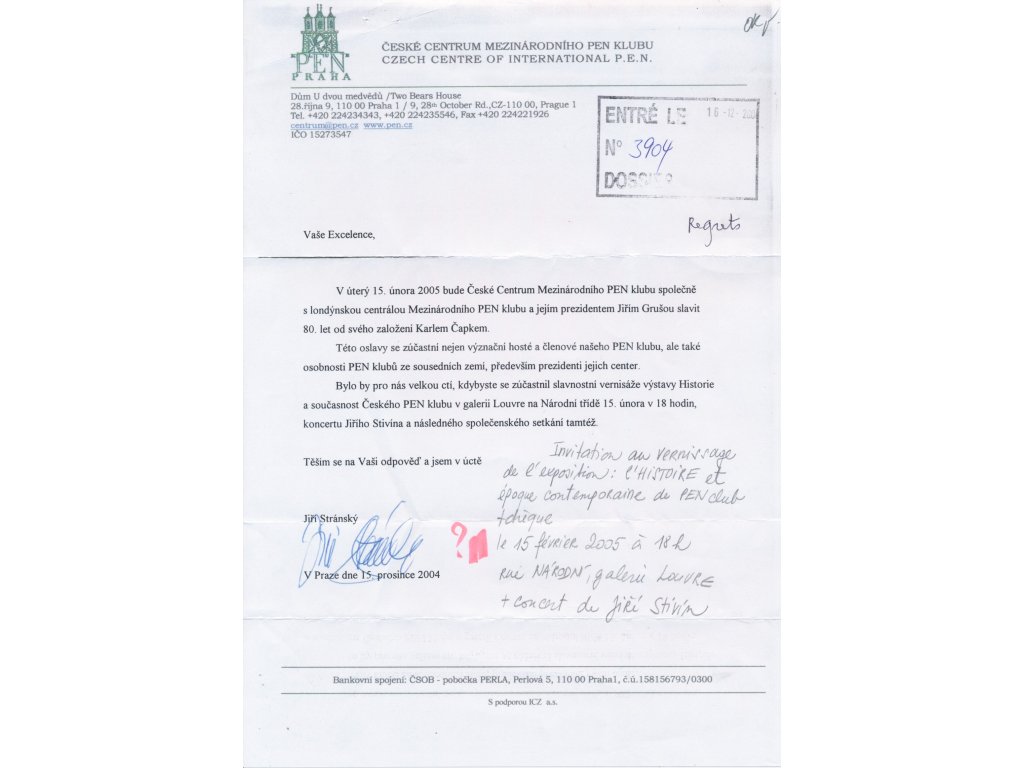 OK
PEN
PRAHA
ČESKÉ CENTRUM MEZINÁRODNÍHO PEN KLUBU
CZECH CENTRE OF INTERNATIONAL P.E.N.
Dům U dvou medvědů /Two Bears House
28.října 9, 110 00 Praha 1 / 9, 28th October Rd.,CZ-110 00, Prague 1
Tel. +420 224234343, +420 224235546, Fax +420 224221926
centrum@pen.cz www.pen.cz
IČO 15273547
ENTRÉ LE 16 -12- 200
N° 3904
DOSSIER
Regrets
Vaše Excelence,
V úterý 15. února 2005 bude České Centrum Mezinárodního PEN klubu společně
s londýnskou centrálou Mezinárodního PEN klubu a jejím prezidentem Jiřím Grušou slavit
80. let od svého založení Karlem Čapkem.
Této oslavy se zúčastní nejen význační hosté a členové našeho PEN klubu, ale také
osobnosti PEN klubů ze sousedních zemí, především prezidenti jejich center.
Bylo by pro nás velkou ctí, kdybyste se zúčastnil slavnostní vernisáže výstavy Historie
a současnost Českého PEN klubu v galerii Louvre na Národní třídě 15. února v 18 hodin,
koncertu Jiřího Stivína a následného společenského setkání tamtéž.
Těším se na Vaši odpověď a jsem v úctě
Jiří Stránský
V Praze dne 15. prosince 2004
Invitation au vernissage
de l'exposition: l'HISTOIRE et
époque contemporaine du PEN club
tchèque
le 15 février 2005 à 18h
rue NÁRODNÍ, galerie LOUVRE
+ concert de Jiří Stivín
?
Bankovní spojení: ČSOB - pobočka PERLA, Perlová 5, 110 00 Praha1, č.ú.158156793/0300
S podporou ICZ a.s.